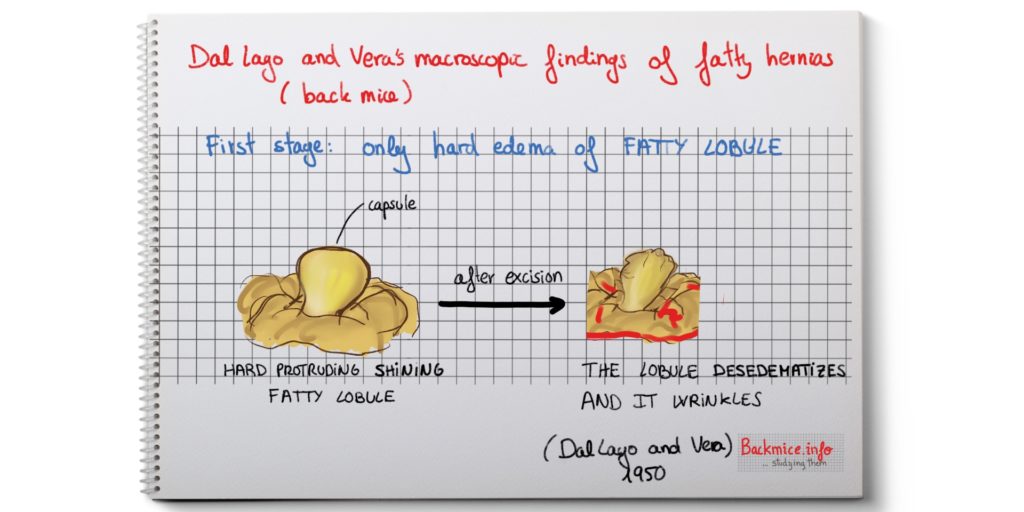 Dal Lago and Vera's macroscopic findings of fatty hernias
(back mice)
First stage: only hard edema of FATTY LOBULE
capsule
after excision
HARD PROTRUDING SHINING
FATTY LOBULE
THE LOBULE DESEDEMATIZES
AND IT WRINKLES
(Dal Lago and Vera)
1950
Backmice.info
... studying them